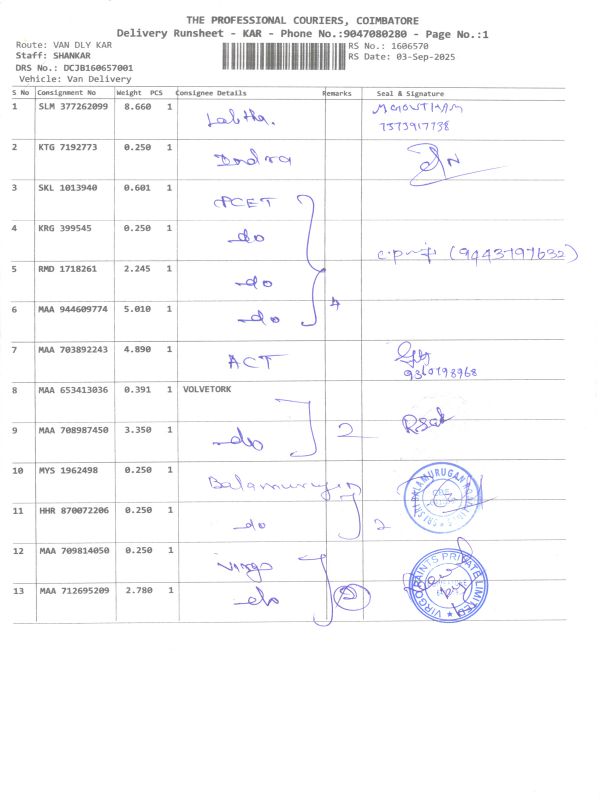 THE PROFESSIONAL COURIERS, COIMBATORE
Delivery Runsheet - KAR - Phone No.:9047080280 - Page No.:1
Route: VAN DLY KAR RS No.: 1606570
Staff: SHANKAR RS Date: 03-Sep-2025
DRS No.: DCJB160657001
Vehicle: Van Delivery
S No Consignment No Weight PCS Consignee Details Remarks Seal & Signature
1 SLM 377262099 8.660 1
7373917738
2 KTG 7192773 0.250 1
3 SKL 1013940 0.601 1 PCET
4 KRG 399545 0.250 1 do (9443797632)
5 RMD 1718261 2.245 1 do
6 MAA 944609774 5.010 1 do 4
7 MAA 703892243 4.890 1 ACT
9360798968
8 MAA 653413036 0.391 1 VOLVETORK
9 MAA 708987450 3.350 1 do 2
10 MYS 1962498 0.250 1 Balamurugan
11 HHR 870072206 0.250 1 do 2
12 MAA 709814050 0.250 1 Virgo
13 MAA 712695209 2.780 1 do 2
VIRGO PAINTS PRIVATE LIMITED